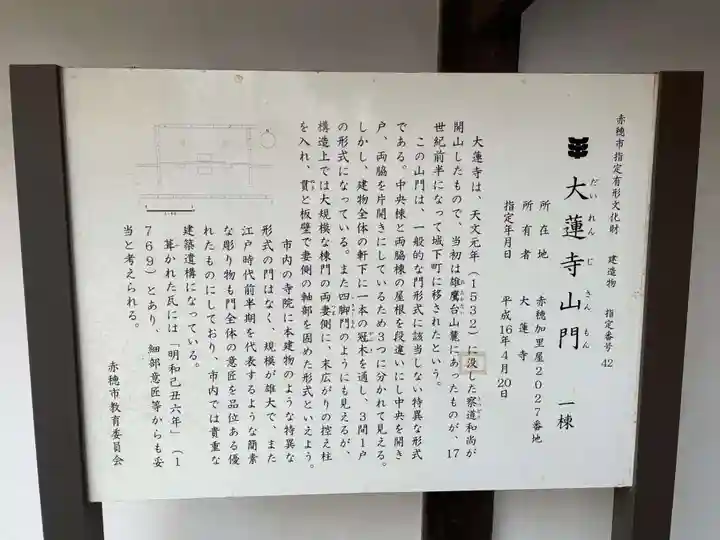 赤穂市指定有形文化財 建造物 指定番号 42
大蓮寺山門 一棟
だいれんじさんもん
所在地 赤穂加里屋2027番地
所有者 大蓮寺
指定年月日 平成16年4月20日
大蓮寺は、天文元年(1532)に没した察道和尚が
開山したもので、当初は雄鷹台山麓にあったものが、17
世紀前半になって城下町に移されたという。
この山門は、一般的な門形式に該当しない特異な形式
である。中央棟と両脇棟の屋根を段違いにし中央を開き
戸、両脇を片開きにしているため3つに分かれて見える。
しかし、建物全体の軒下に一本の冠木を通し、3間1戸
の形式になっている。また四脚門のようにも見えるが、
構造上では大規模な棟門の両妻側に、末広がりの控え柱
を入れ、貫と板壁で妻側の軸部を固めた形式といえよう。
市内の寺院に本建物のような特異な
形式の門はなく、規模が雄大で、また
江戸時代前半期を代表するような簡素
な彫り物も門全体の意匠を品位ある優
れたものにしており、市内では貴重な
建築遺構になっている。
葺かれた瓦には「明和己丑六年」(1
769)とあり、細部意匠等からも妥
当と考えられる。
赤穂市教育委員会